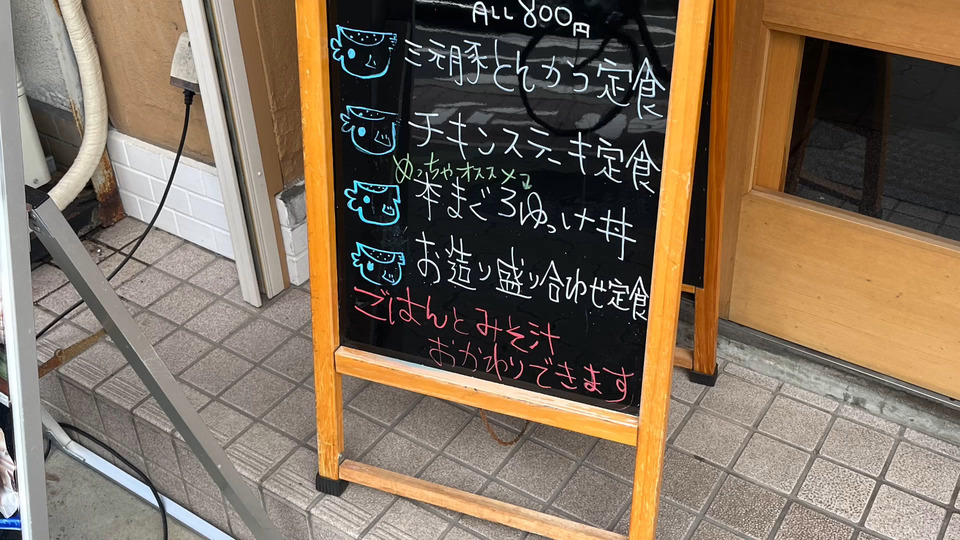 ALL 800円
三元豚とんかつ定食
チキンステーキ定食
めっちゃオススメ
本まぐろゆっけ丼
お造り盛り合わせ定食
ごはんとみそ汁
おかわりできます